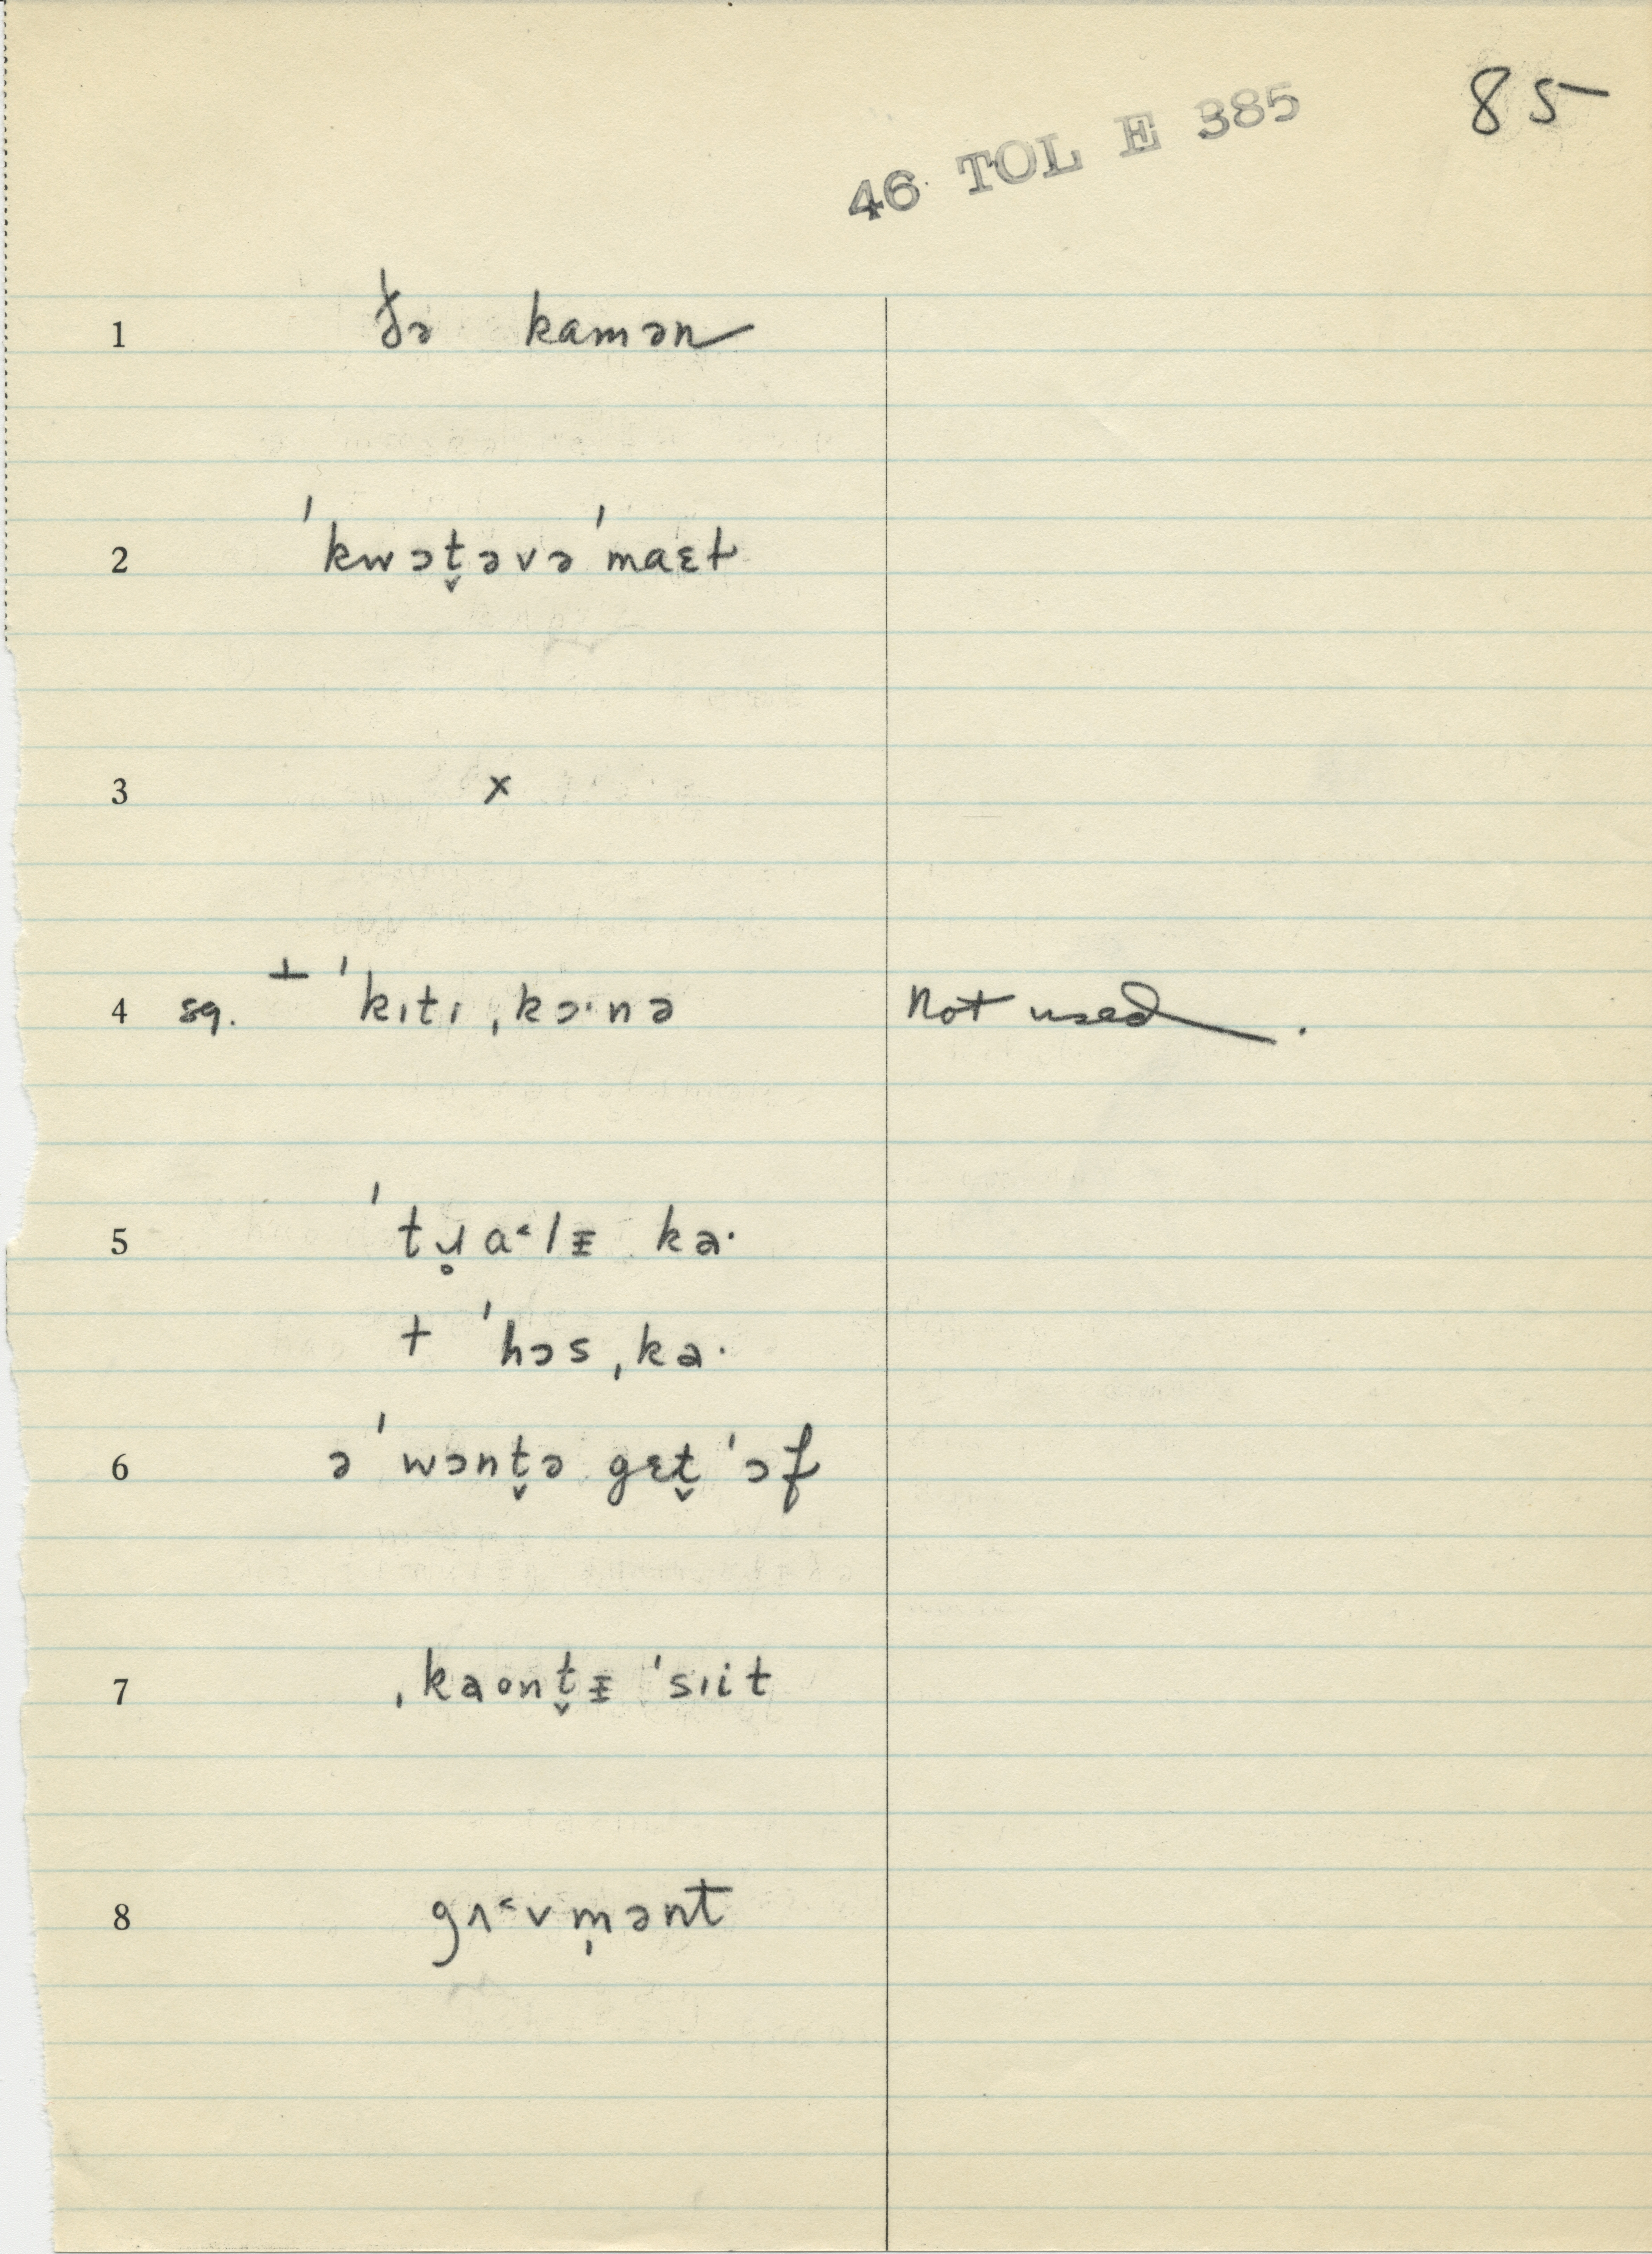 85
46 TOL E 385
1 ðə kamən
2 ˈkwɔt̬əvə ˈmaɛt
3 x
4 sq. ⊥ ˈkɪtɪ ˌkɔ·nə Not used.
5 ˈtɹ̥ɑ˂lᵻ kə·
+ ˈhɔs ˌkə·
6 ə ˈwɔnt̬ə gɛt̬ ˈɔf
7 ˌkaont̬ᵻ ˈsɪit
8 gʌ˂vm̩ənt